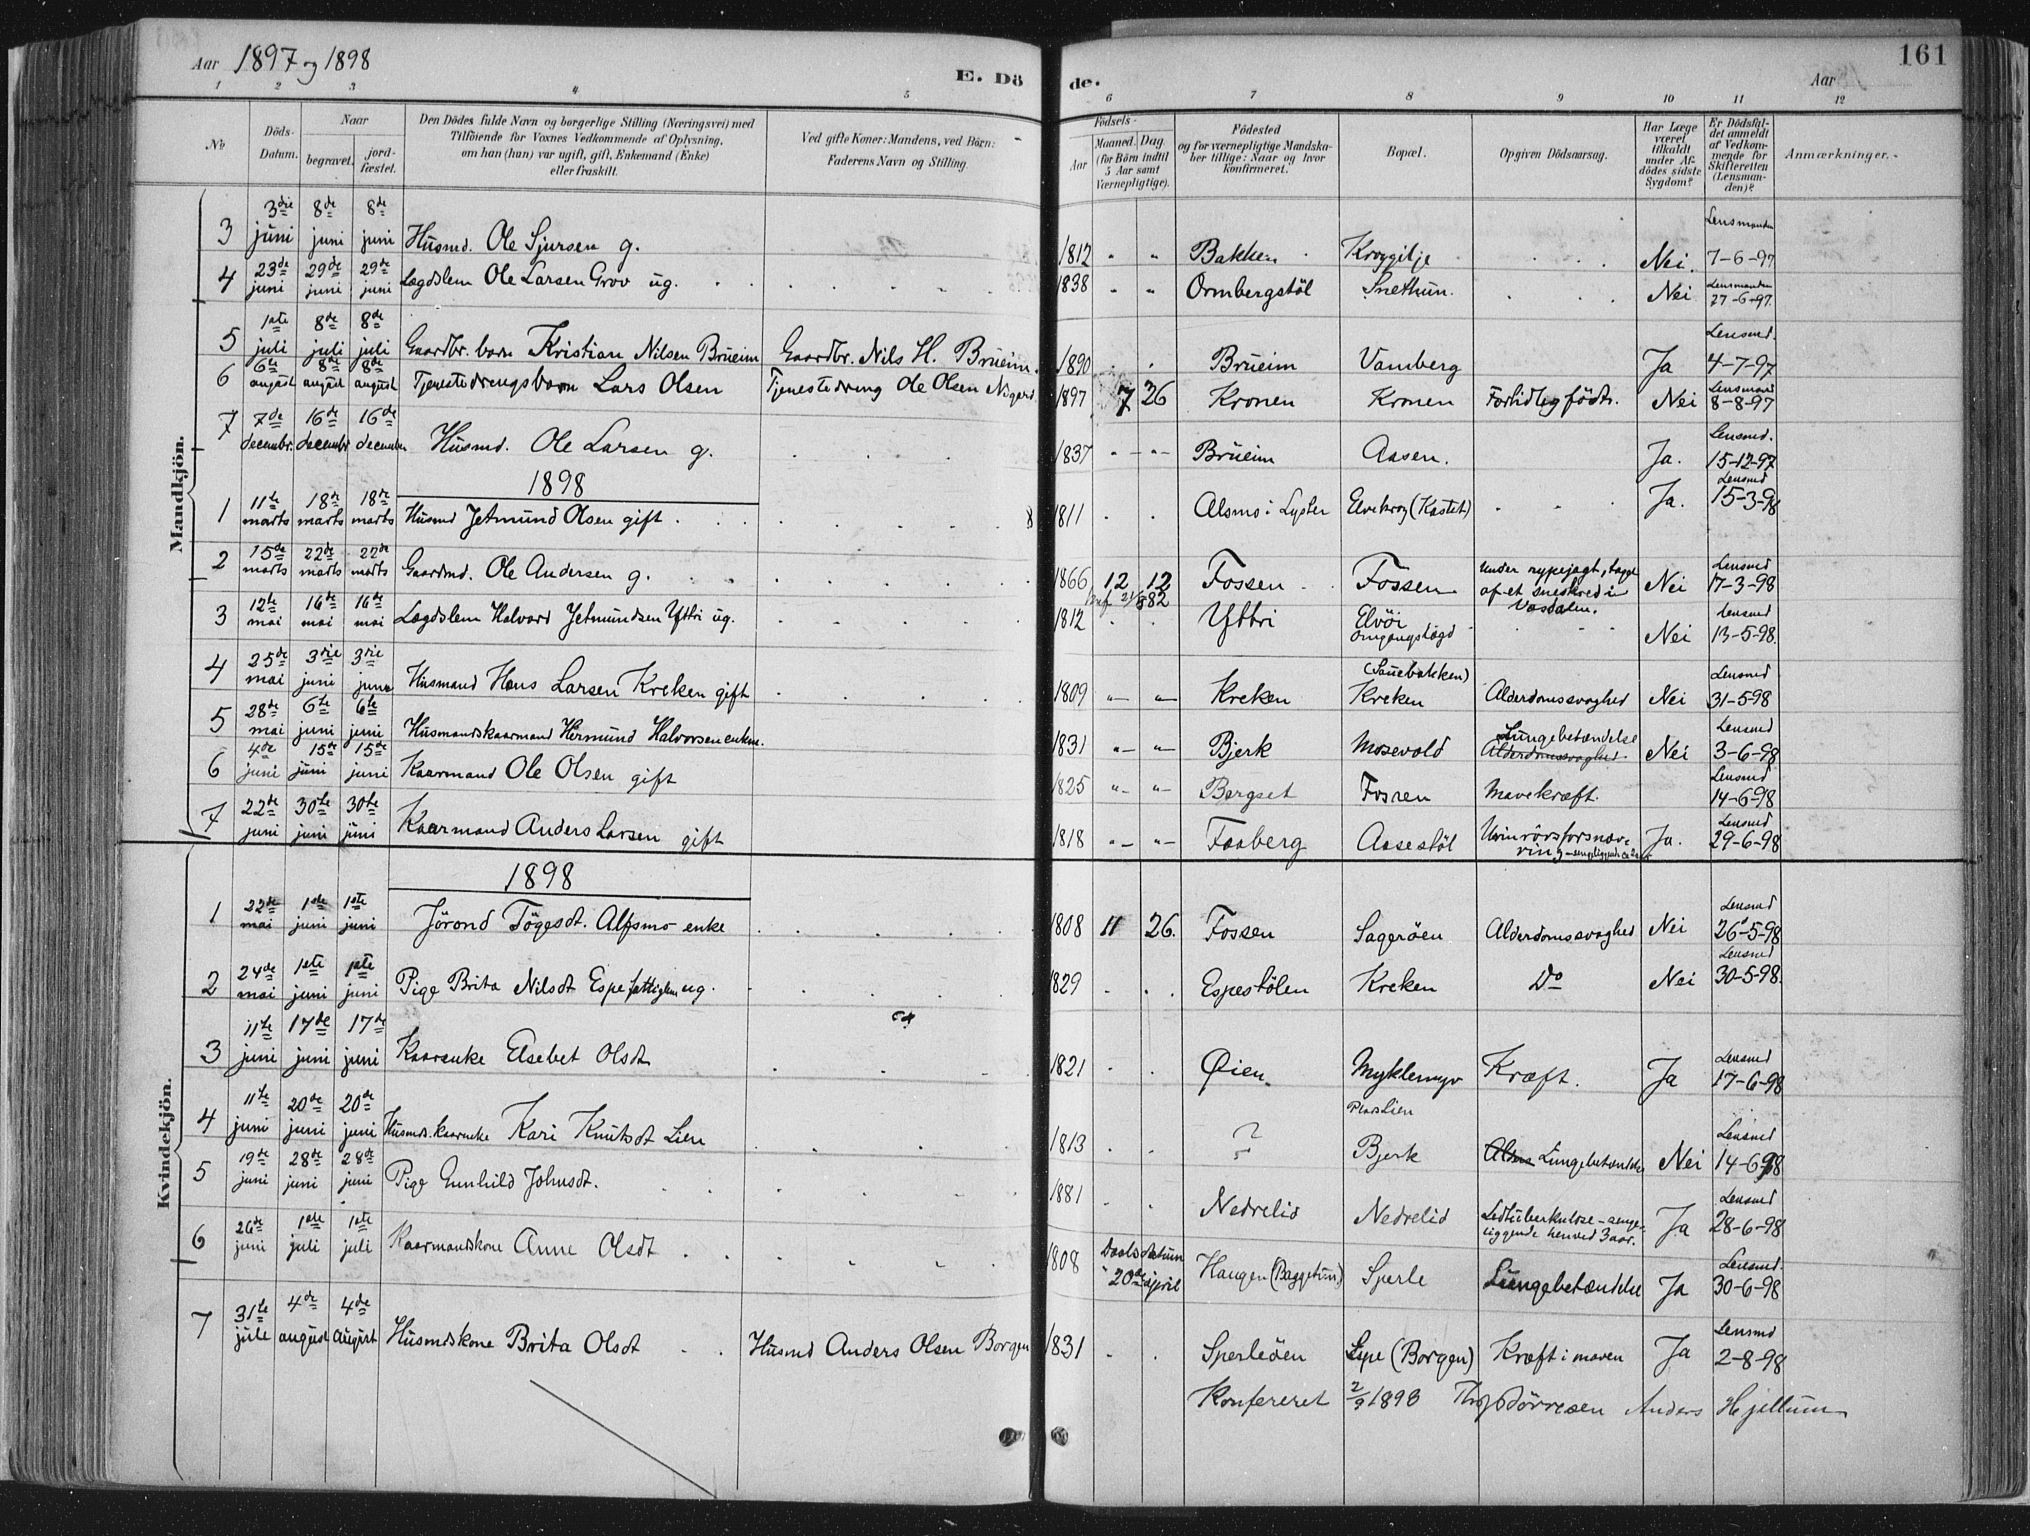 161
Aar 1897 og 1898
E. Döde.
Aar
1 2 3 4 5 6 7 8 9 10 11 12
No
Döds-Datum.
Naar
begravet.
jord-fæstet.
Den Dödes fulde Navn og borgerlige Stilling (Næringsvei) med
Tilföiende for Voxnes Vedkommende af Oplysning,
om han (hun) var ugift, gift, Enkemand (Enke)
eller fraskilt.
Ved gifte Koner: Mandens, ved Börn:
Faderens Navn og Stilling.
Födsels-
Aar
Maaned. Dag
(for Börn indtil
5 Aar samt
Værnepligtige).
Födested
og for værnepligtige Mandska-
ber tillige: Naar og hvor
konfirmeret.
Bopæl.
Opgiven Dödsaarsag.
Har Læge
været
tilkaldt
under Af-
dödes sidste
Sygdom?
Er Dödsfal-
det anmeldt
af Vedkom-
mende for
Skifteretten
(Lensman-
den)?
Anmærkninger.
Mandkjön.
3 3die juni 8de juni 8de juni Husmd. Ole Sjursen g. 1812 Bakken Kroggilje Nei. Lensmanden 7-6-97
4 23de juni 29de juni 29de juni Lægdslem Ole Larsen Grov ug. 1838 Ormbergstöl Snethun. Nei Lensmanden 27-6-97.
5 1ste juli 8de juli 8de juli Gaardbr. barn Kristian Nilsen Brüeim Gaardbr. Nils H. Brüeim. 1890 Brüeim Vamberg Ja Lensmd. 4-7-97
6 6te august 8de august 8de august Tjenestedrengsbarn Lars Olsen Tjenestedreng Ole Olsen Nigard. 1897 7 26 Kronen Kronen Fortidlig födt. Nei Lensmand 8-8-97
7 7de decembr. 16de decembr 16de decembr Husmd. Ole Larsen g. 1837 Brüeim Aasen. Ja. Lensmd. 15-12-97
1898
1 11te marts 18de marts 18de marts Husmd Jetmund Olsen gift 1811 Alsmo i Lyster Elvekrog (Kastet) Ja. Lensmd 15-3-98
2 15de marts 22de marts 22de marts Gaardmd. Ole Andersen g. 1866 12 12 Fossen Fossen under rypejagt, taget af et sneskred i Vasdalen. Nei Lensmd 17-3-98
3 12te mai 16de mai 16de mai Lægdslem Halvard Jetmundsen Yttri ug. 1812 Yttri Elvöi omgangslægd Nei Lensmd 13-5-98.
4 25de mai 3die juni 3die juni Husmand Hans Larsen Kreken gift 1809 Kreken (Sauebakken) Kreken Alderdomssvaghed Nei Lensmd 31-5-98
5 28de mai 6te juni 6te juni Husmandskaarmand Hermund Halvorsen enkm. 1831 Bjerk Mosevold Lungebetændelse Alderdomssvaghed Nei Lensmd 3-6-98
6 4de juni 15de juni 15de juni Kaarmand Ole Olsen gift 1825 Bergset Fossen Mavekræft. Lensmd 14-6-98
7 22de juni 30te juni 30te juni Kaarmand Anders Larsen gift 1818 Faaberg Aasestöl Urinrörsforsnævring Ja. Lensmd 29-6-98
Kvindekjön.
1898
1 22de mai 1ste juni 1ste juni Jörond Tögesdt. Alfsmo enke 1808 11 26. Fossen Sageröen Alderdomssvaghed Nei Lensmd 26-5-98
2 24de mai 1ste juni 1ste juni Pige Brita Nilsdt Espe fattiglem ug. 1829 Espestölen Kreken Do Nei Lensmd 30-5-98.
3 11te juni 17de juni 17de juni Kaarenke Elsebet Olsdt 1821 Øien. Myklemyr Kræft. Ja Lensmd 17-6-98
4 11te juni 20de juni 20de juni Husmds.kaarenke Kari Knutsdt Lien 1813 ? Plads Lien Bjerk Lungebetændelse Nei Lensmd 14-6-98
5 19de juni 28de juni 28de juni Pige Gunhild Johnsdt. 1881 Nedrelid Nedrelid Ledtuberkulose - senge-liggende henved 3 aar. Ja Lensmd 28-6-98
6 26de juni 1ste juli 1ste juli Kaarmandskone Anne Olsdt 1808 Daabsdatum 20de april Haugen (Baggetun) Sperle Lungebetændelse Ja Lensmd. 30-6-98
7 31te jule 4de august 4de august Husmdskone Brita Olsdt Husmd Anders Olsen Borgen 1831 Sperleöen Espe (Borgen) Kræft i maven Ja Lensmd 2-8-98
Konfereret 2/9 1898 Anders Hjellum